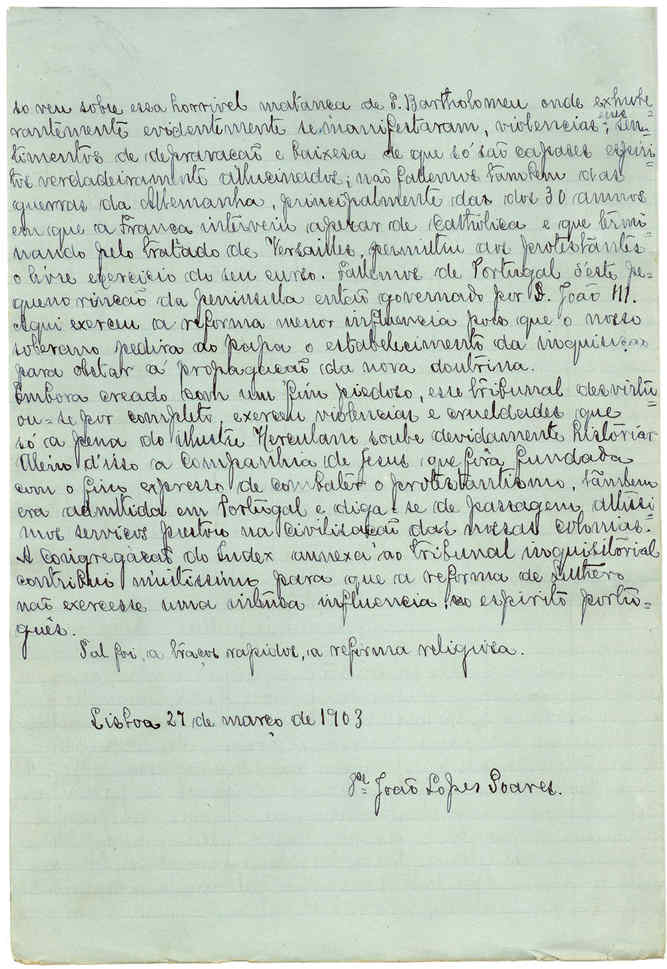 so veu sobre essa horrivel matança de S. Bartholomeu onde exhube
rantemente evidentemente se manifestaram, violencias, sen=
timentos de depravação e baixeza de que só são capases espiri
tos verdadeiramente allucinados; não fallemos tambem das
guerras da Allemanha, principalmente das dos 30 annos
em que a França interveiu apezar de catholica e que termi
nando pelo tratado de Versailles, permittiu aos protestantes
o livre exercicio do seu curso. Fallemos de Portugal d'este pe=
queno rincão da peninsula então governado por D. João III.
Aqui exerceu a reforma menor influencia pois que o nosso
soberano pedira ao papa o estabelecimento da inquisição
para obstar á propagação da nova doutrina.
Embora creado com um fim piedoso, esse tribunal desvirtu=
ou=se por completo, exerceu violencias e crueldades que
só a pena do illustre Herculano soube devidamente historiar
Alem d'isso a Companhia de Jesus que fôra fundada
com o fim expresso de combater o protestantismo, tambem
era admittida em Portugal e diga-se de passagem, altissi
mos serviços prestou na civilisação das nossas colonias.
A congregação do Index annexa ao tribunal inquisitorial
contribui muitissimo para que a reforma de Luthero
não exercesse uma influencia no espirito portu=
guês.
Tal foi, a traços rapidos, a reforma religiosa.
Lisboa 27 de março de 1903
João Lopes Soares.